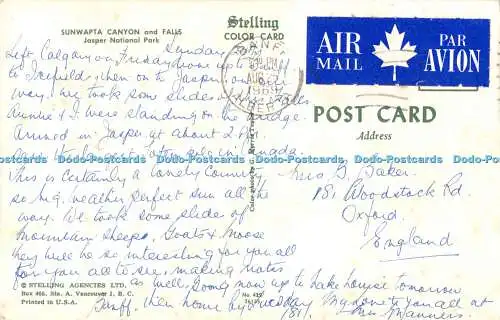 SUNWAPTA CANYON and FALLS
Jasper National Park
Sunday
Left Calgary on Friday up to
to Icefields, then on to Jasper, on
way. We took some slides of
Auntie & I were standing on the bridge.
Arrived in Jasper at about 2
Canada.
This is certainly a lovely Country
so big. weather perfect sun all the
way. We took some slides of
Mountain Sheeps, Goats & Moose
they will be so interesting for you all
for you all to see, making notes
as well, Going now up to Lake Louise tomorrow
Banff, then home by Tuesday. My love to you all at
181,
© STELLING AGENCIES LTD.
Box 465. Stn. A. Vancouver 1, B.C.
Printed in U.S.A.
Stelling
COLOR CARD
BANFF
1969
AIR MAIL
PAR AVION
POST CARD
Address
Mrs Baker
181 Woodstock Rd.
Oxford.
England
Dodo-Postcards Dodo-Postcards Dodo-Postcards Dodo-Postcards Dodo-Postcards Dodo-Postcards